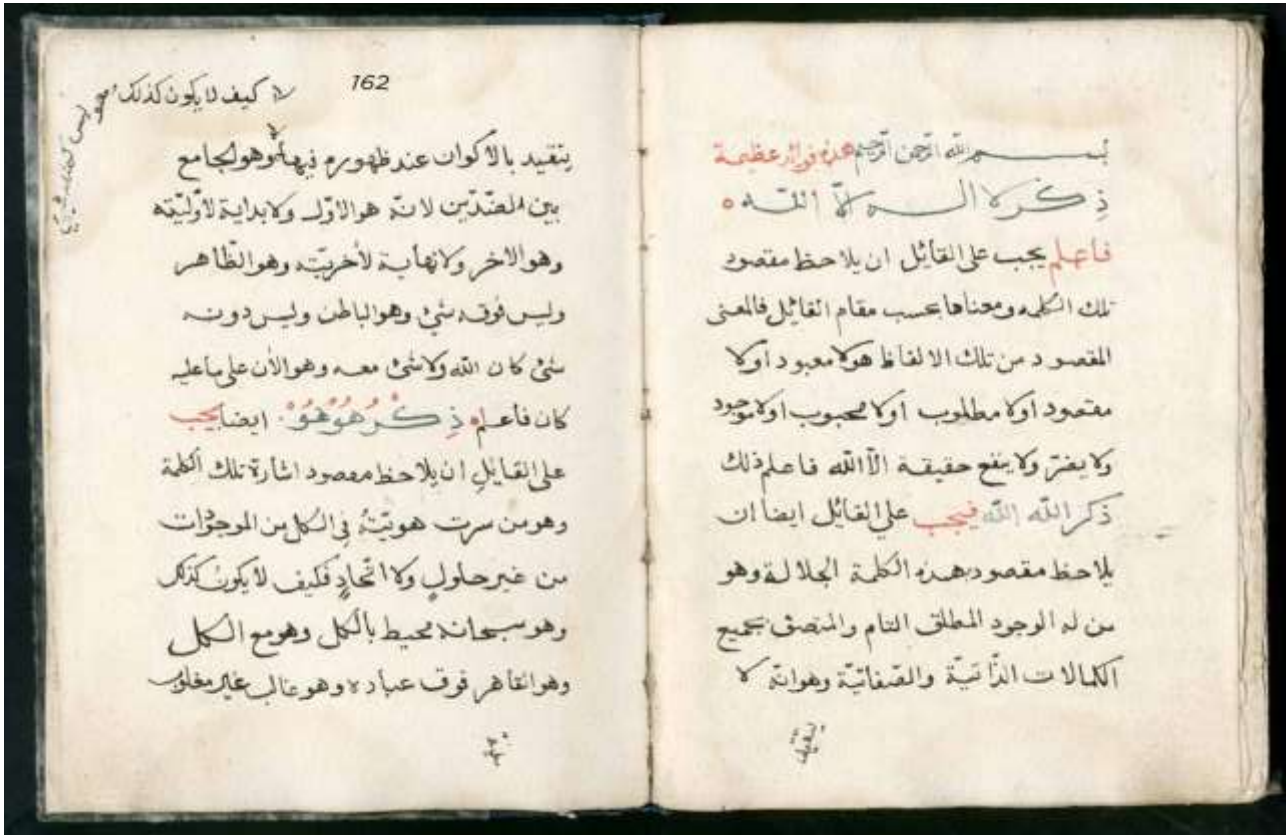 بسم الله الرحمن الرحيم هذه فوائد عظيمة
ذِكر لا اله الّا الله ه
فاعلم يجب على القائل ان يلاحظ مقصود
تلك الكلمه ومعناها بحسب مقام القائل فالمعنى
المقصود من تلك الالفاظ هو لا معبود او لا
مقصود او لا مطلوب او لا محبوب او لا موجود
ولا يضرّ ولا ينفع حقيقة الّا الله فاعلم ذلك
ذكر الله الله فيجب على القائل ايضا ان
يلاحظ مقصود هذه الكلمة الجلالة وهو
من له الوجود المطلق التام والمتصف بجميع
الكمالات الذّاتيّة والصّفاتيّة وهو انّه لا
يتقيد
162
كيف لا يكون كذلك
يتقيد بالاكوان عند ظهوره فيها وهو الجامع
بين الضّدّين لانّه هو الاوّل ولا بداية لاوّليّته
وهو الاخر ولا نهاية لأخريّته وهو الظّاهر
وليس فوقه شئ وهو الباطن وليس دونه
شئ كان الله ولا شئ معه وهو الأن على ما عليه
كان فأعلم ه ذِكْرُ هُوَ هُوَ ايضا يجب
على القايل ان يلاحظ مقصود اشارة تلك الكلمة
وهو من سرت هويّتهُ فى الكل من الموجودات
من غير حلولٍ ولا اتّحادٍ فكيف لا يكون كذلك
وهو سبحانه محيط بالكل وهو مع الكل
وهو القاهر فوق عباده وهو غالب غير مغلوب